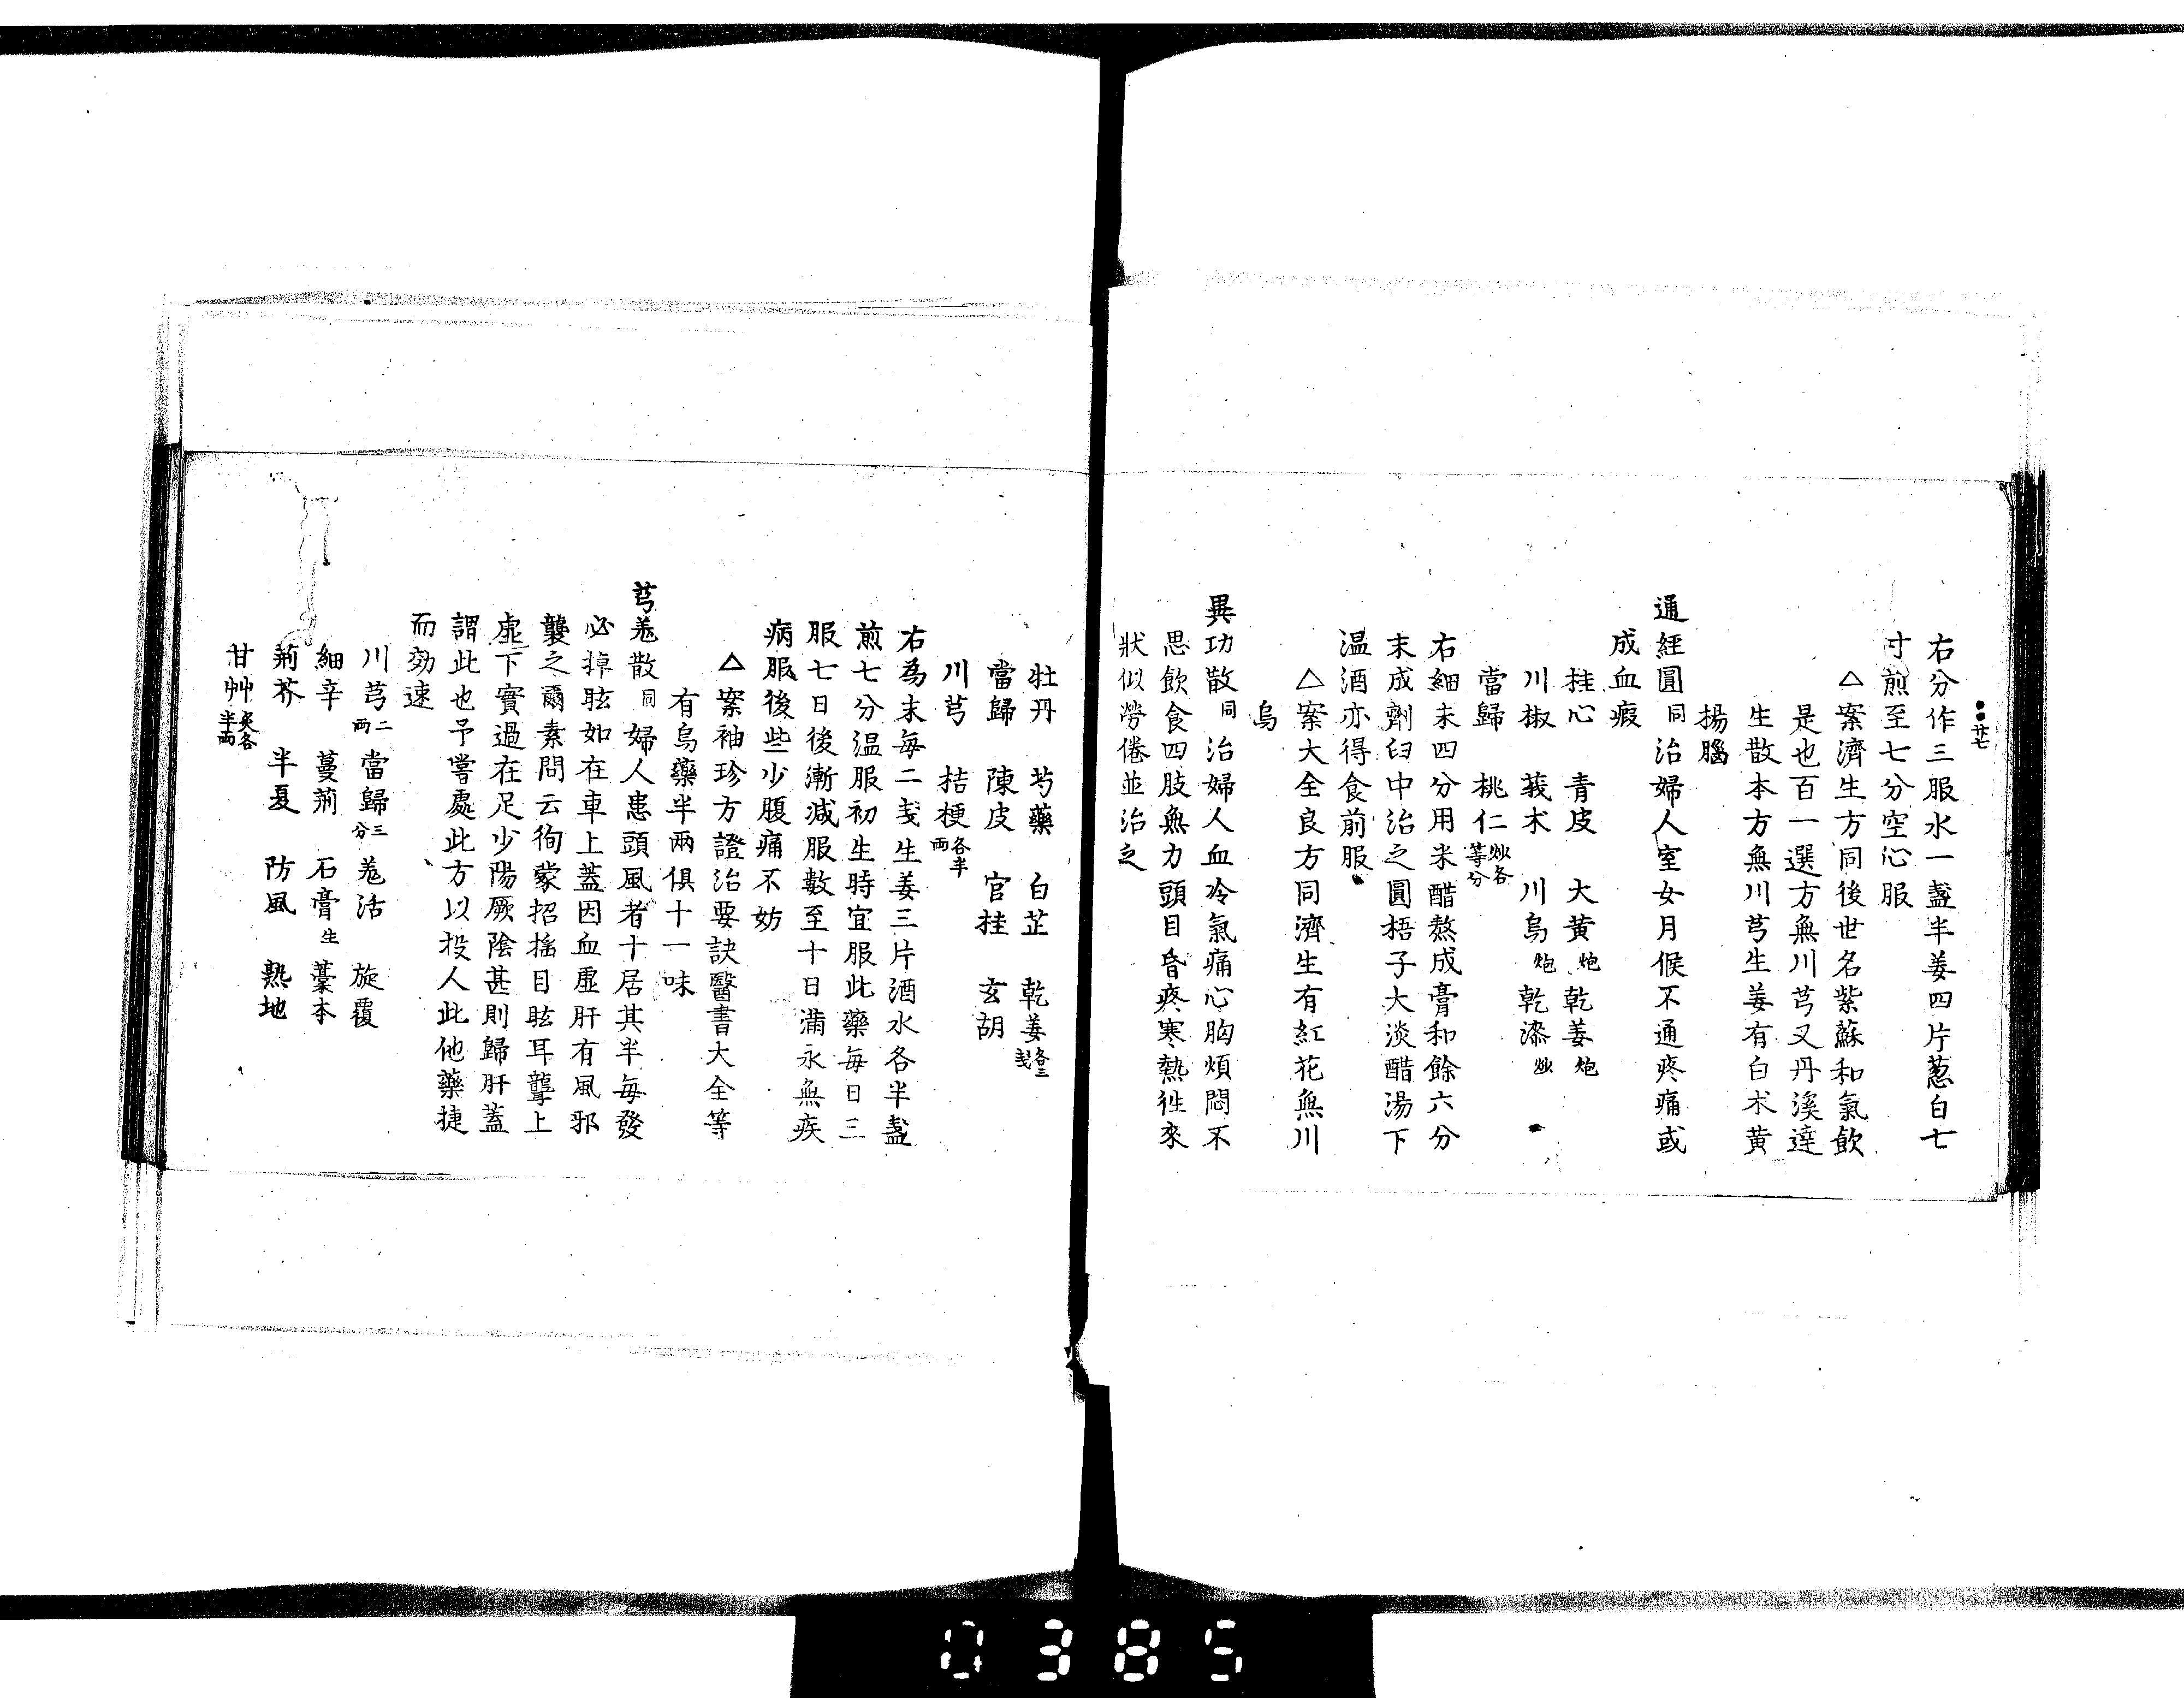 廿七
右分作三服水一盞半姜四片葱白七
寸煎至七分空心服
△案濟生方同後世名紫蘇和氣飲
是也百一選方無川芎又丹溪達
生散本方無川芎生姜有白朮黄
楊腦
通經圓同治婦人室女月候不通疼痛或
成血瘕
桂心 青皮 大黄炮 乾姜炮
川椒 莪朮 川烏炮 乾漆炒
當歸 桃仁炒各等分
右細末四分用米醋熬成膏和餘六分
末成劑臼中治之圓梧子大淡醋湯下
温酒亦得食前服
△案大全良方同濟生有紅花無川
烏
異功散同治婦人血冷氣痛心胸煩悶不
思飲食四肢無力頭目昏疼寒熱徃來
狀似勞倦並治之
牡丹 芍藥 白芷 乾姜各三戔
當歸 陳皮 官桂 玄胡
川芎 桔梗各半両
右為末毎二戔生姜三片酒水各半盞
煎七分温服初生時宜服此藥毎日三
服七日後漸减服數至十日滿永無疾
病服後些少腹痛不妨
△案袖珍方證治要訣醫書大全等
有烏藥半兩俱十一味
芎羗散同婦人患頭風者十居其半毎發
必掉眩如在車上蓋因血虛肝有風邪
襲之爾素問云徇蒙招揺目眩耳聾上
虛下實過在足少陽厥陰甚則歸肝蓋
謂此也予嘗處此方以投人比他藥捷
而効速
川芎二両 當歸三分 羗活 旋覆
細辛 蔓荊 石膏生 藁本
荊芥 半夏 防風 熟地
甘艸炙各半両
0385